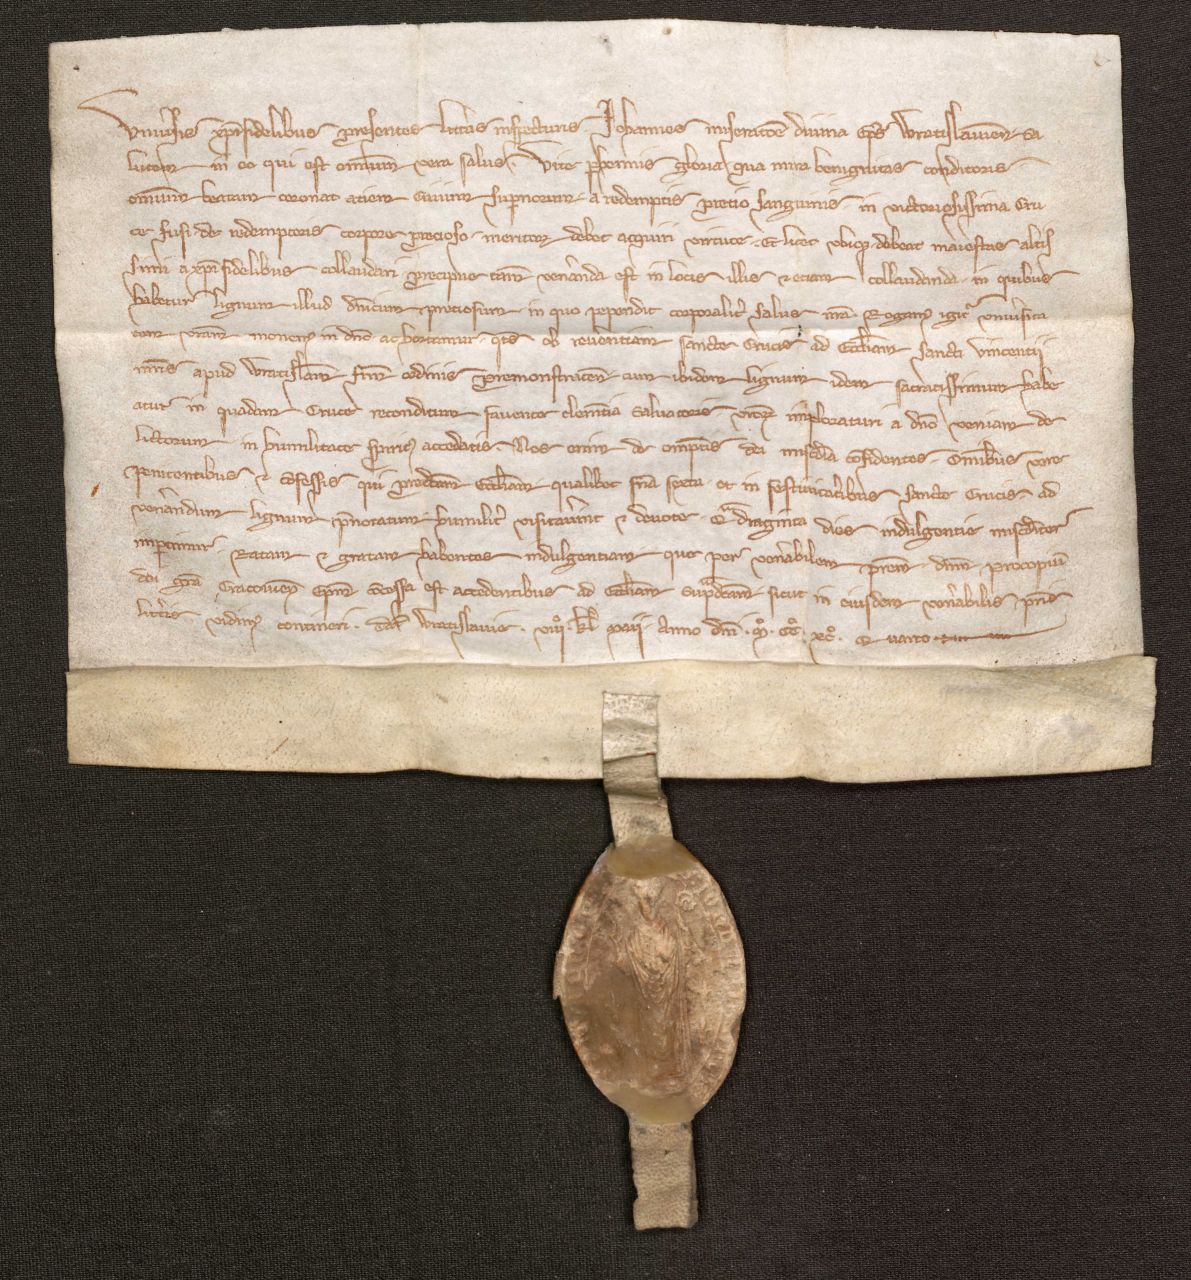 Vniuersis xpifidelibus presentes litteras inspecturis. Johannes miseratoe diuina Eps Wratislauien Sa
lutem in eo qui est omium vera salus. Vite phennis gloria qua mira benignitas conditoris
omium beatam coronat aciem Ciuium supnorum a redemptis pretio sanguinis in victoriosissima Cru
ce fusi de redemptoris corpore precioso meritor debet acquiri virtute. Et licet vbiq debeat maiestas altis
simi a xpifidelibus collaudari precipue tam veneranda est in locis illis et etiam collaudanda in quibus
habetur lignum illud dnicum et pretiosum in quo pependit corporalit salus nra. Rogam igit vniuersita
tem vram monem in dno ac hortamur. qts ob reuerentiam sancte Crucis ad Eccliam sancti Vincentij
mris apud Wratislauiam frm ordinis Premonstraten cum ibidem lignum idem sacratissimum habe
atur in quadam Cruce reconditum fauente clementia saluatoris vror imploraturi a dno veniam de
lictorum in humilitate spirit accedatis. Nos enim de omptis dei miscdia cofidentes. Omibus vere
penitentibus et cofessis qui predictam Eccliam qualibet fria sexta et in festiuitatibus sancte Crucis ad
venerandum lignum prenotatum humilit visitauerint et deuote Quadraginta dies indulgentie misericorditer
impertimur. Ratam et gratam habentes indulgentiam que per venerabilem Prem dnm Procopium
dei gra Cracouien Epm cocessa est accedentibus ad Eccliam supdictam sicut in eiusdem venerabilis pris
litteris vidim contineri. Dat Wratislauie. viij. kl maij. Anno dni. M. CC. xc. Quarto